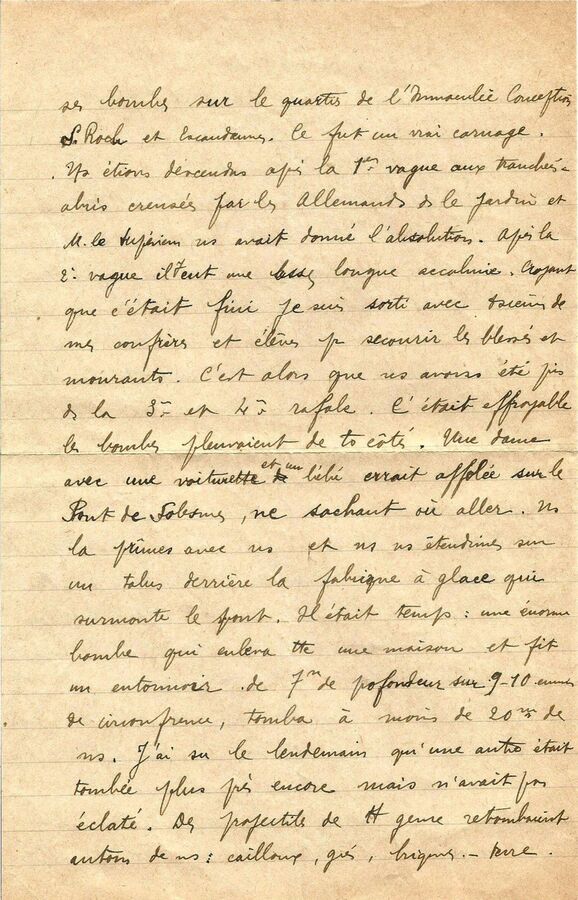 ses bombes sur le quartier de l'Immaculée Conception
St. Roch et Escaudœuvres. Ce fut un vrai carnage.
Ns étions descendus après la 1ère vague aux tranchées-
abris creusées par les Allemands ds le Jardin et
M. le Supérieur ns avait donné l'absolution. Après la
2e vague il y eut une assez longue accalmie. Croyant
que c'était fini je suis sorti avec de
mes confrères et élèves pr secourir les blessés et
mourants. C'est alors que ns avons été pris
ds la 3me et 4me rafale. C'était effroyable
les bombes pleuvaient de ts côtés. Une dame
avec une voiturette et un bébé errait affolée sur le
Pont de Solesmes, ne sachant où aller. Ns
la prîmes avec ns et ns ns étendîmes sur
un talus derrière la fabrique à glace qui
surmonte le pont. Il était temps : une énorme
bombe qui enleva tte une maison et fit
un entonnoir de 7m de profondeur sur 9-10
de circonfrence, tomba à moins de 20m de
ns. J'ai su le lendemain qu'une autre était
tombée plus près encore mais n'avait pas
éclaté. Des projectiles de tt genre retombaient
autour de ns : cailloux, grés, briques - terre.